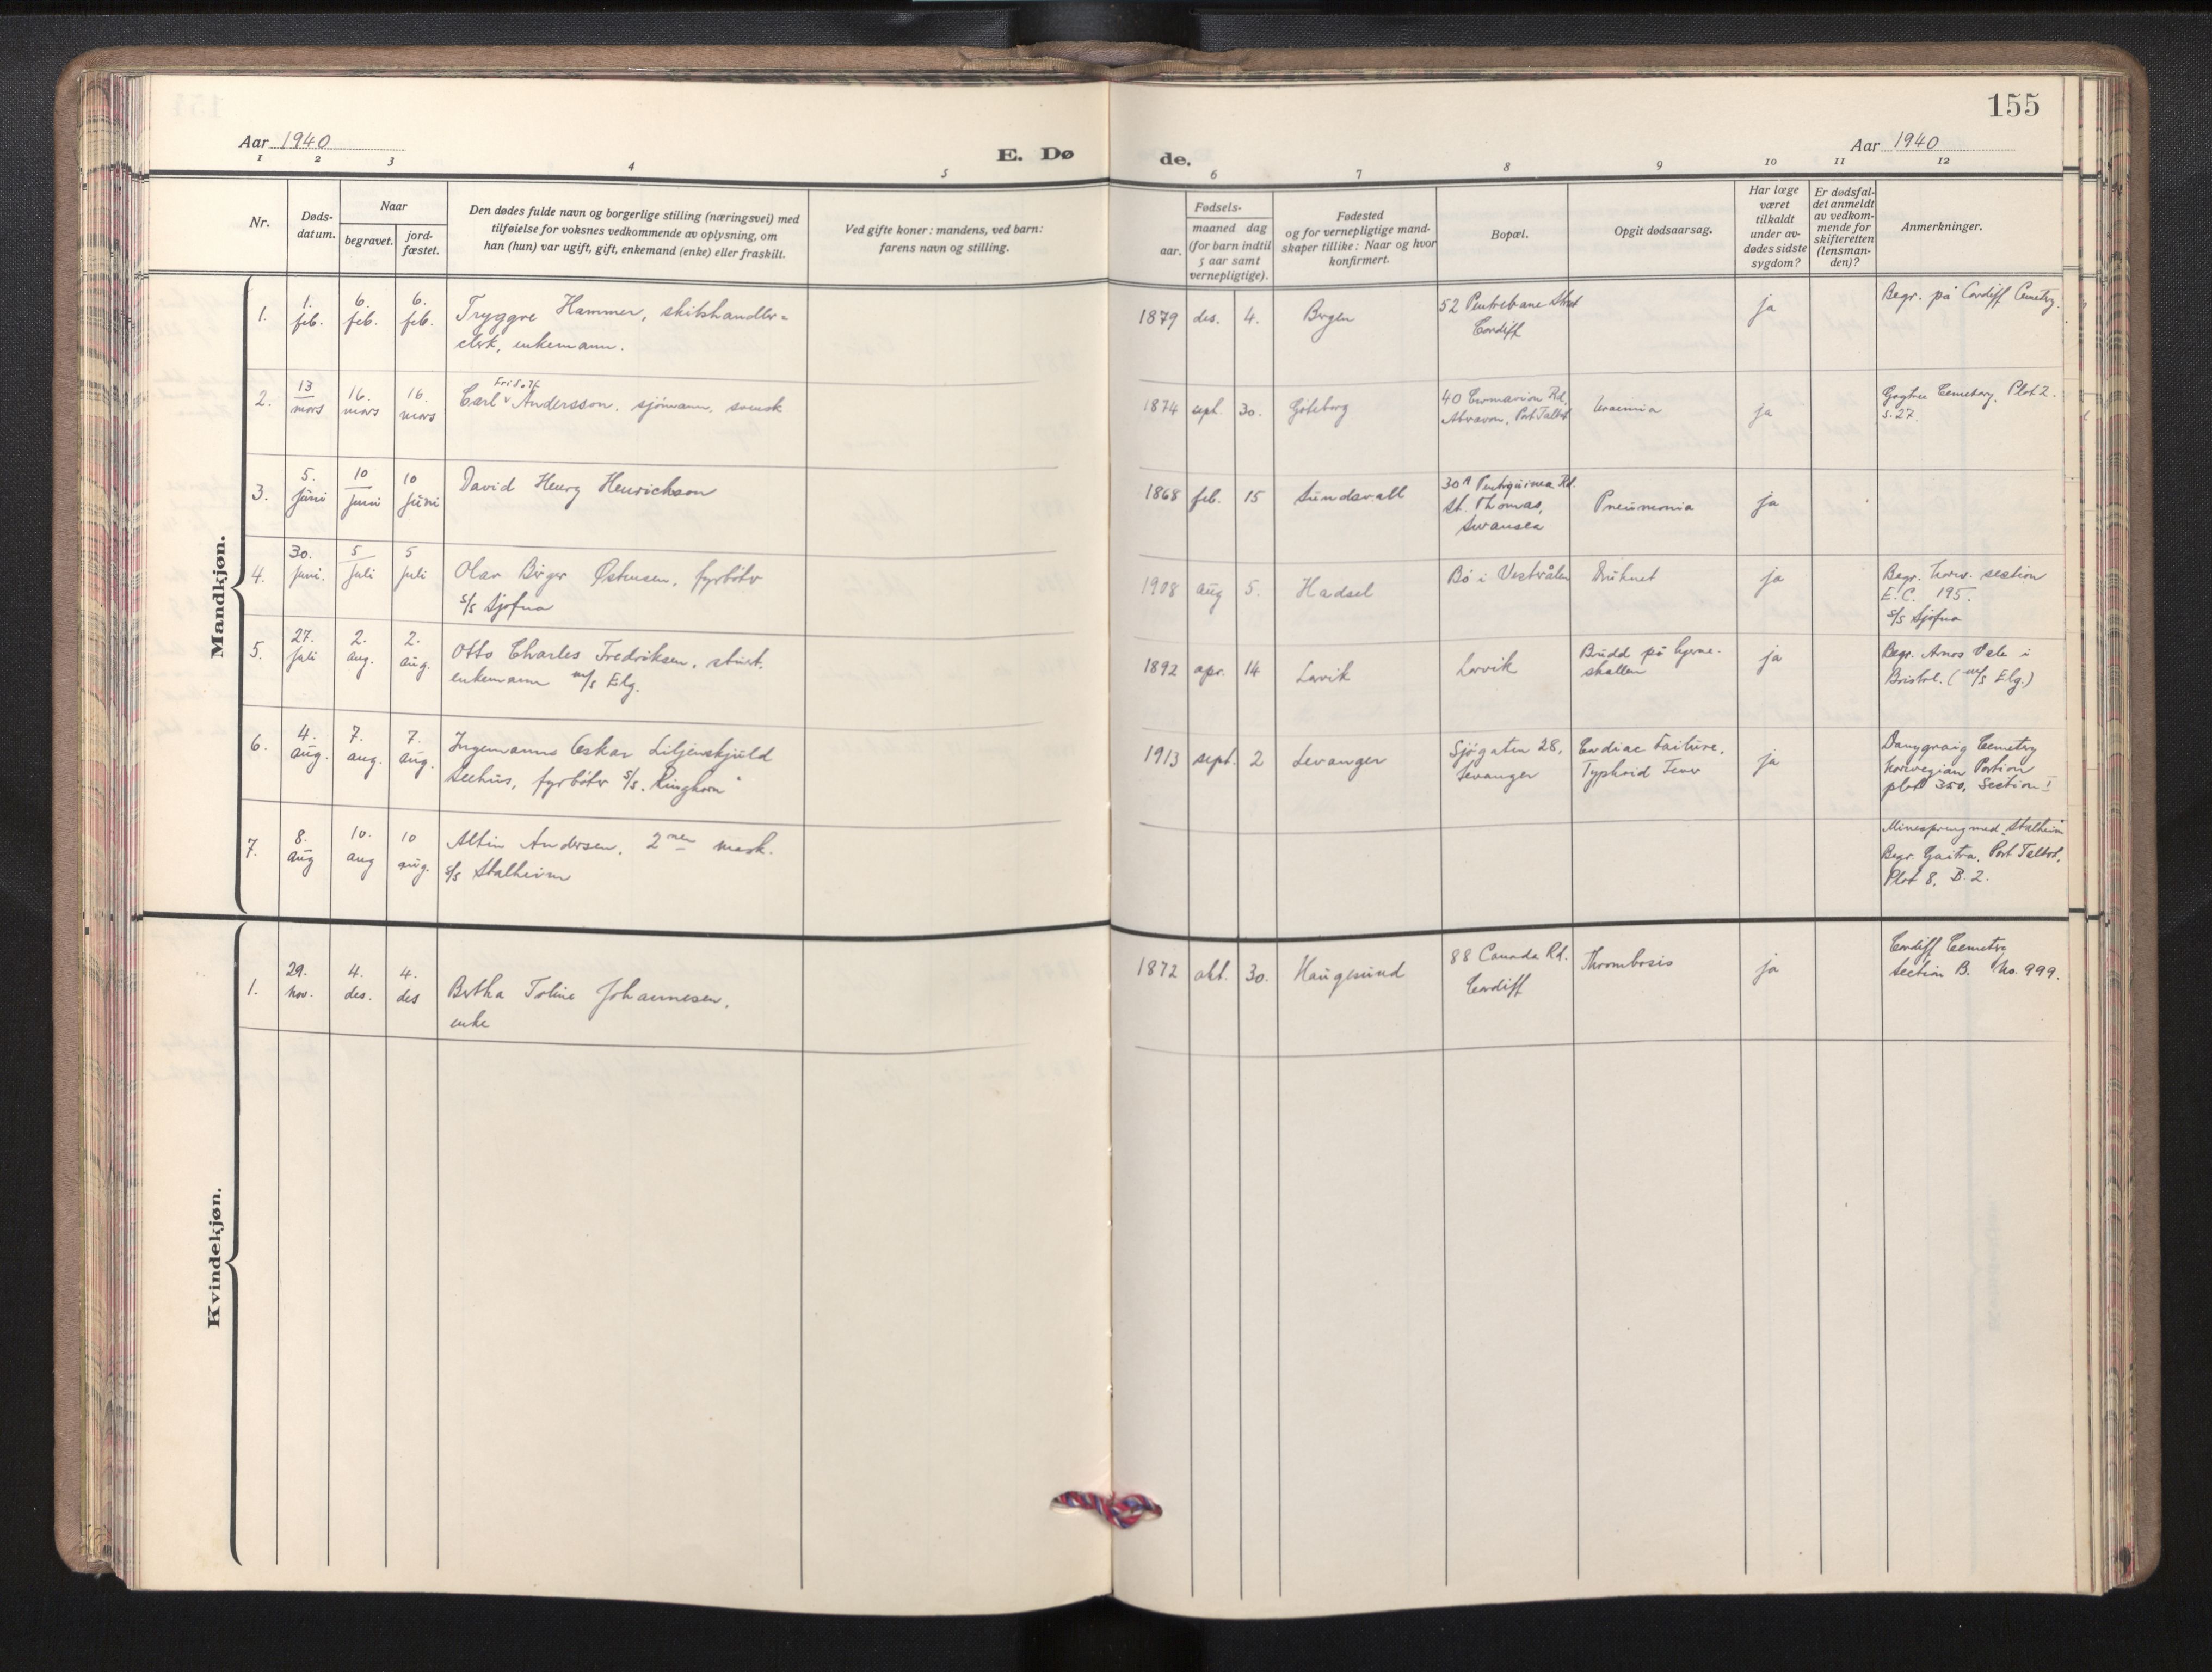 155
Aar 1940
E. Dø
de.
Aar 1940
1 2 3 4 5 6 7 8 9 10 11 12
Nr.
Døds-
datum.
Naar
begravet.
jord-
fæstet.
Den dødes fulde navn og borgerlige stilling (næringsvei) med
tilføielse for voksnes vedkommende av oplysning, om
han (hun) var ugift, gift, enkemand (enke) eller fraskilt.
Ved gifte koner: mandens, ved barn:
farens navn og stilling.
Fødsels-
aar.
maaned dag
(for barn indtil
5 aar samt
vernepligtige).
Fødested
og for vernepligtige mand-
skaper tillike: Naar og hvor
konfirmert.
Bopæl.
Opgit dødsaarsag.
Har læge
været
tilkaldt
under av-
dødes sidste
sygdom?
Er dødsfal-
det anmeldt
av vedkom-
mende for
skifteretten
(lensman-
den)?
Anmerkninger.
Mandkjøn.
1.
1.
feb.
6.
feb.
6.
feb.
Tryggve Hammer, skibshandler=
clerk, enkemann.
1879 des. 4.
Bergen
52 Pentrebane Street
Cardiff
ja
Begr. på Cardiff Cemetry.
2.
13
mars
16.
mars
16.
mars
Fritjof
Carl Andersson, sjömann, svensk
1874 sept. 30.
Göteborg
Rd.
Port Talbot
Uraemia
ja
Cemetery, Plot 2.
S. 27.
3.
5.
juni
10
juni
10
juni
David Henry Henrichson
1868 feb. 15
Sundsvall
30A Rd.
St. Thomas,
Swansea
Pneumonia
ja
4.
30.
juni.
5
juli
5
juli
Olav Birger Østensen, fyrbøter
s/s Sjofna
1908 aug 5.
Hadsel
Bö i Vesterålen
Druknet
ja
Begr. norw. section
E.C. 195.
s/s Sjofna
5.
27.
juli
2.
aug.
2.
aug.
Otto Charles Fredriksen, stuert.
enkemann m/s Elg.
1892 apr. 14
Larvik
Larvik
Brudd på hjerne-
skallen
ja
Begr. Arnos Vale i
Bristol. (m/s Elg.)
6.
4.
aug.
7.
aug.
7.
aug.
Oskar Liljenskjold
Seehus, fyrbøter s/s. "Ringhorn"
1913 sept. 2
Levanger
Sjøgaten 28,
Levanger
Cardiac Failure,
Typhoid Fever
ja
Danygraig Cemetry
Norwegian Portion
plot 350, Section I
7.
8.
aug
10.
aug
10
aug.
Altin Andersen, 2nen mask.
s/s Stalheim
Minesprengt med "Stalheim"
Begr. Port Talbot,
Plot 8, B. 2.
Kvindekjøn.
1.
29.
nov.
4.
des.
4.
des
Bertha Toline Johannesen,
enke
1872 okt. 30.
Haugesund
88 Canada Rd.
Cardiff
Thrombosis
ja
Cardiff Cemetry
Section B. No. 999.